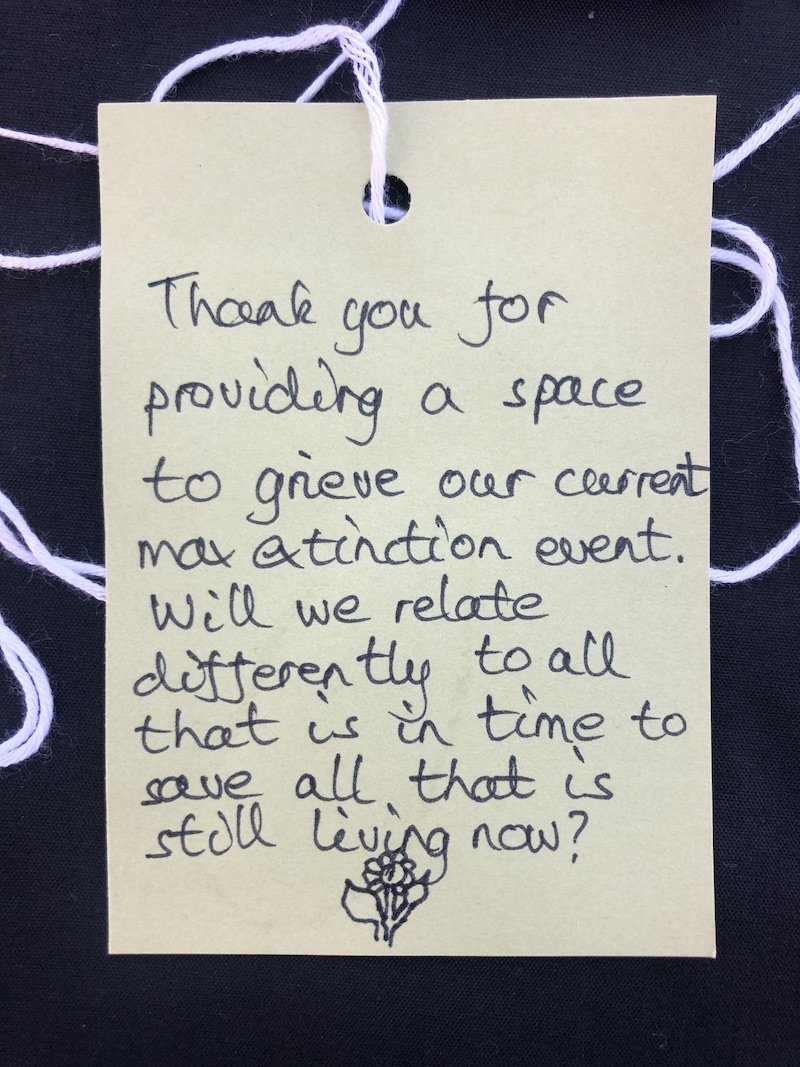 Thank you for
providing a space
to grieve our current
max extinction event.
Will we relate
differently to all
that is in time to
save all that is
still living now?